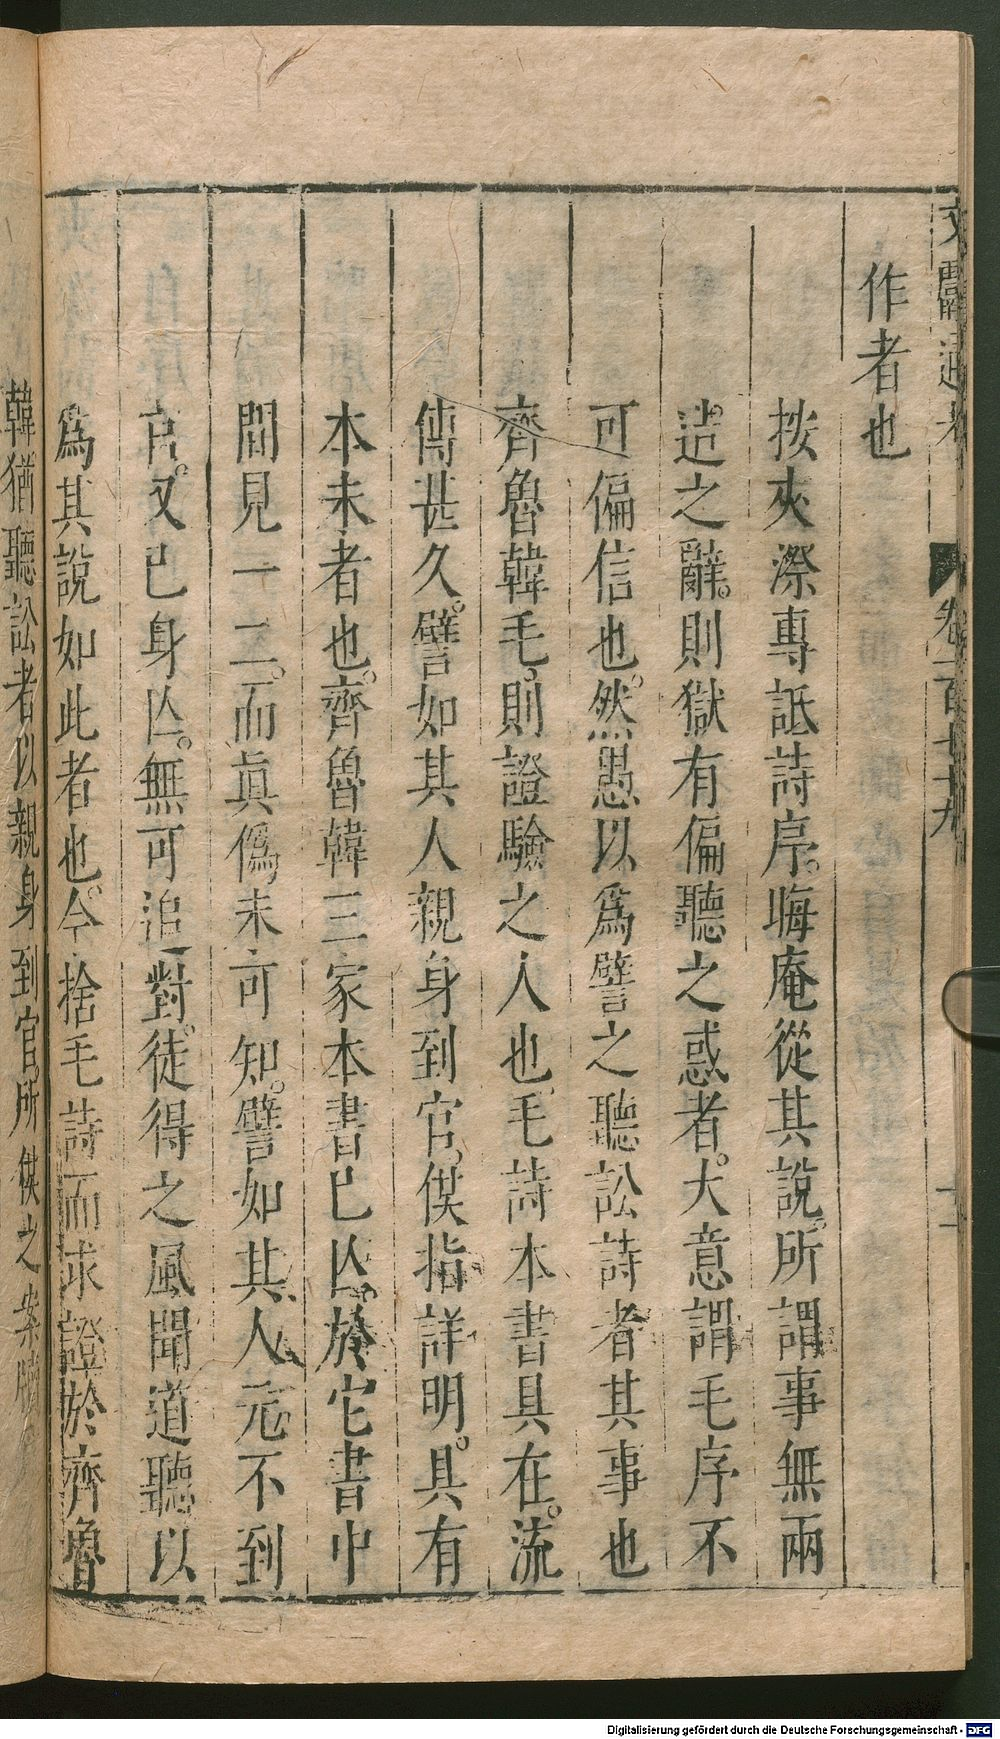 文獻通考 卷一百七十九 十二
作者也
按夾漈專詆詩序。晦庵從其說。所謂事無兩
造之辭。則獄有偏聽之惑者。大意謂毛序不
可偏信也。然愚以爲譬之聽訟詩者其事也
齊魯韓毛則證驗之人也毛詩本書具在。流
傳甚久。譬如其人親身到官。供指詳明。具有
本末者也。齊魯韓三家本書已亾。於它書中
間見一二。而眞僞未可知。譬如其人元不到
官。又已身亾。無可追對。徒得之風聞道聽以
爲其說如此者也。今捨毛詩而求證於齊魯
韓猶聽訟者以親身到官所供之案牘
Digitalisierung gefördert durch die Deutsche Forschungsgemeinschaft - DFG